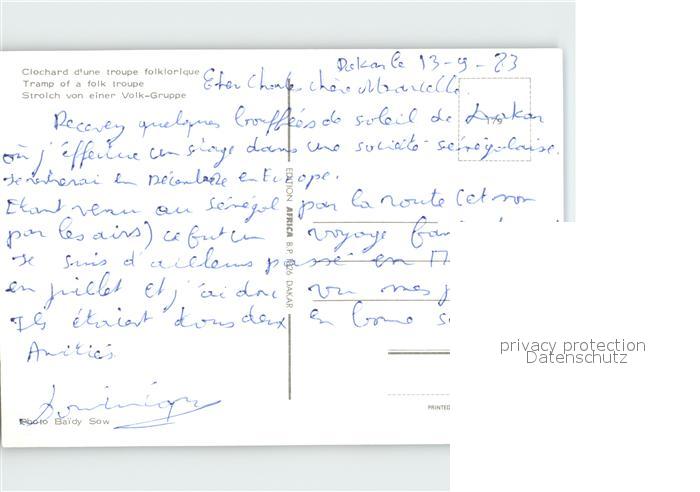 Clochard d'une troupe folklorique
Tramp of a folk troupe
Strolch von einer Volk-Gruppe
Dakar le 13-9-83
Cher Charles chère Marcelle.
Recevez quelques bouffées de soleil de Dakar
179
où j'effectue un stage dans une société sénégalaise.
Je rentrerai en Décembre en Europe.
Etant venu au Sénégal par la route (et non
par les airs) ce fut un voyage
Je suis d'ailleurs passé en
en juillet et j'ai donc vu mes
Ils étaient tous deux en bonne
Amitiés
Dominique
Photo Baïdy Sow
EDITION AFRICA B.P. 1826 DAKAR
PRINTED
privacy protection
Datenschutz